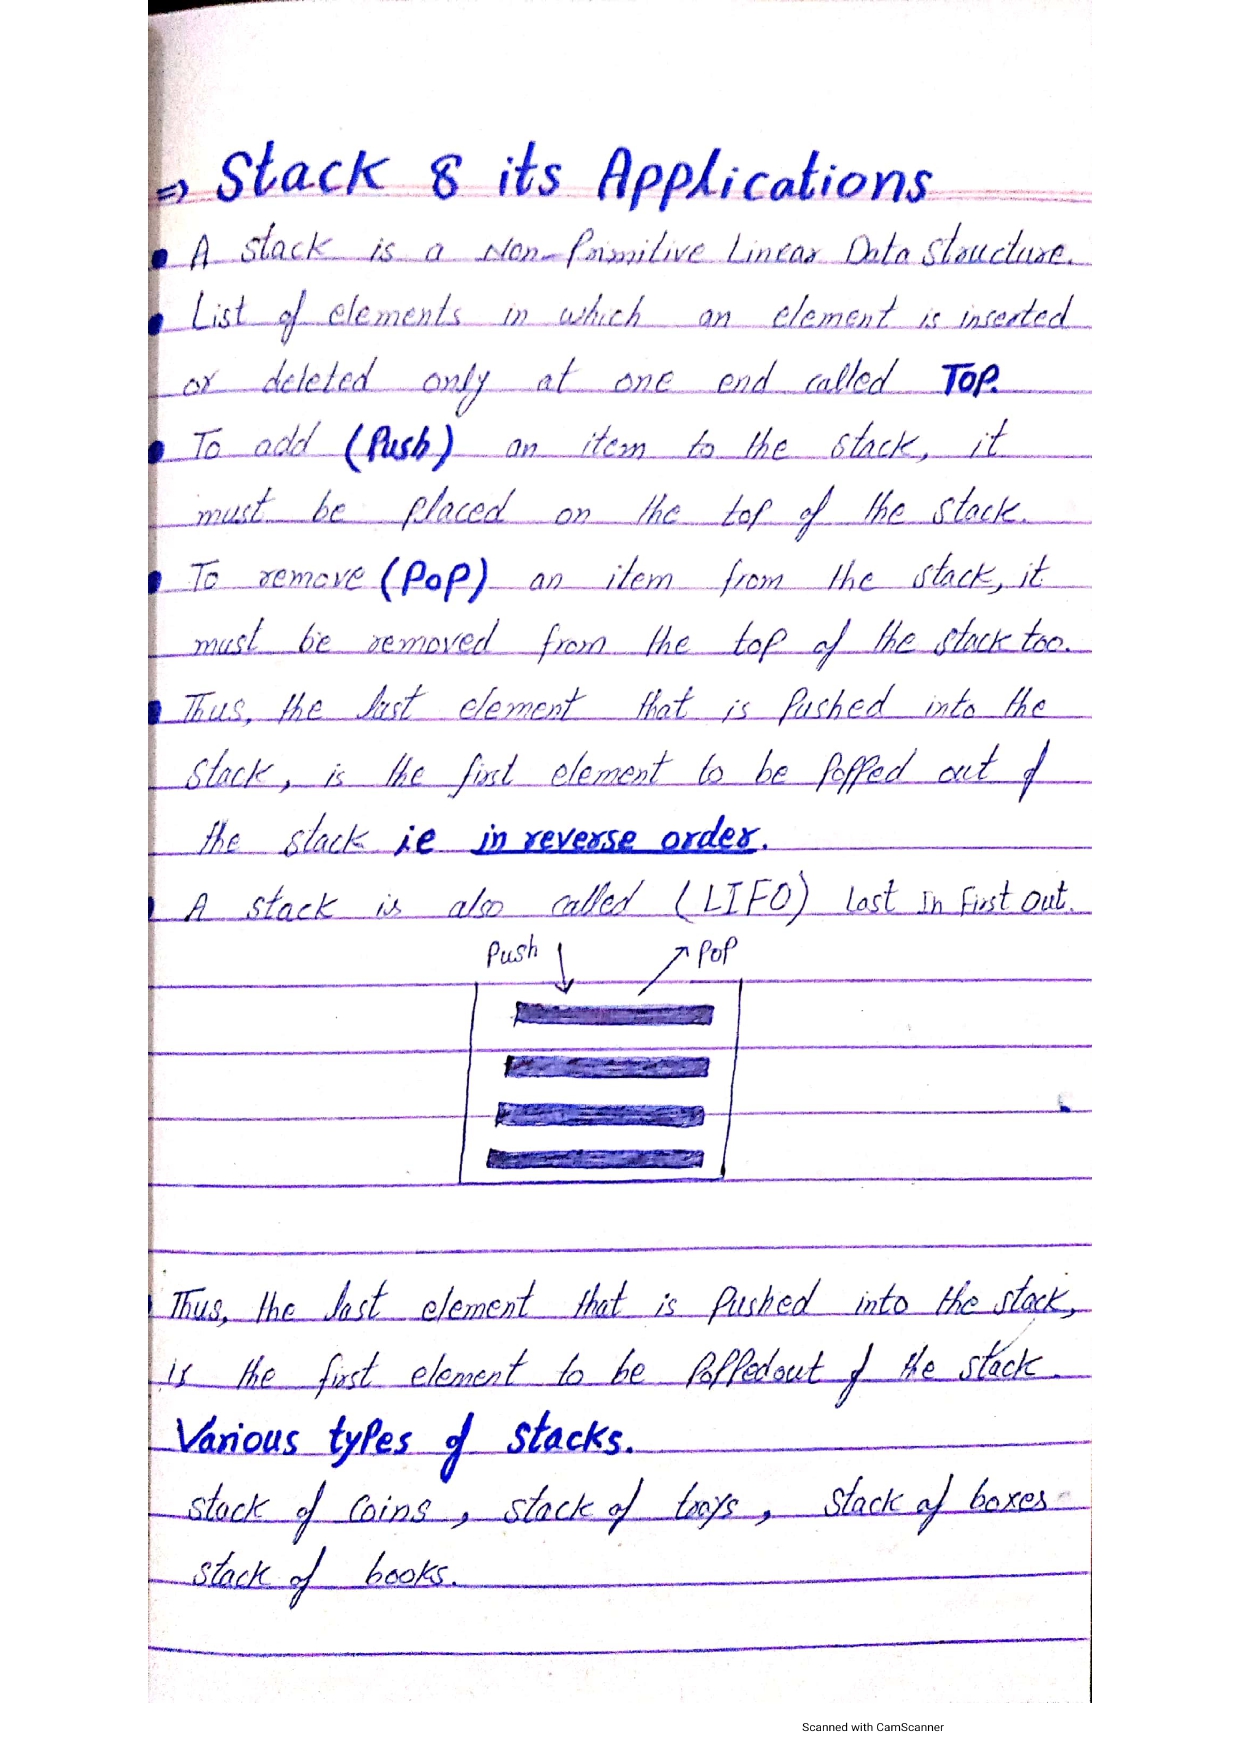 ⇒ Stack & its Applications
• A stack is a Non-Primitive Linear Data Structure.
• List of elements in which an element is inserted
or deleted only at one end called Top.
• To add (Push) an item to the stack, it
must be placed on the top of the stack.
• To remove (Pop) an item from the stack, it
must be removed from the top of the stack too.
• Thus, the last element that is Pushed into the
Stack, is the first element to be Popped out of
the stack ie in reverse order.
• A stack is also called (LIFO) Last In First Out.
Push Pop
• Thus, the last element that is Pushed into the stack,
is the first element to be Popped out of the stack.
Various types of stacks.
stack of Coins, stack of trays, stack of boxes
stack of books.
Scanned with CamScanner